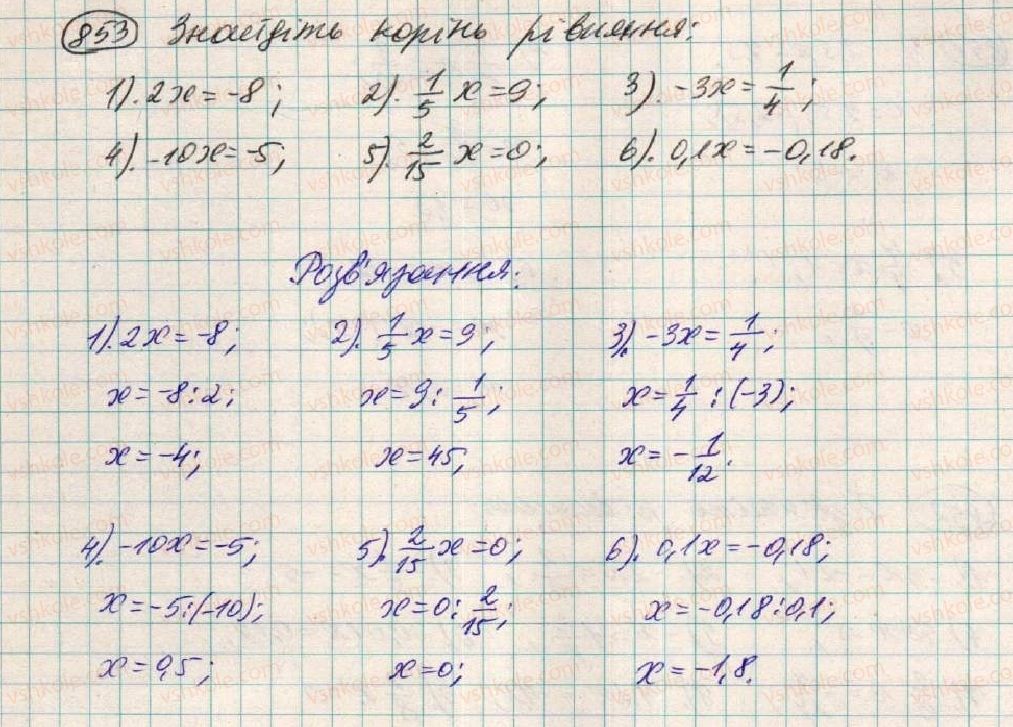 853 Знайдіть корінь рівняння:
1). 2x = -8; 2). 1/5 x = 9; 3). -3x = 1/4;
4). -10x = -5; 5). 2/15 x = 0; 6). 0,1x = -0,18.
Розв'язання:
1). 2x = -8; 2). 1/5 x = 9; 3). -3x = 1/4;
x = -8 : 2; x = 9 : 1/5; x = 1/4 : (-3);
x = -4; x = 45; x = - 1/12.
4). -10x = -5; 5). 2/15 x = 0; 6). 0,1x = -0,18;
x = -5 : (-10); x = 0 : 2/15; x = -0,18 : 0,1;
x = 0,5; x = 0; x = -1,8.